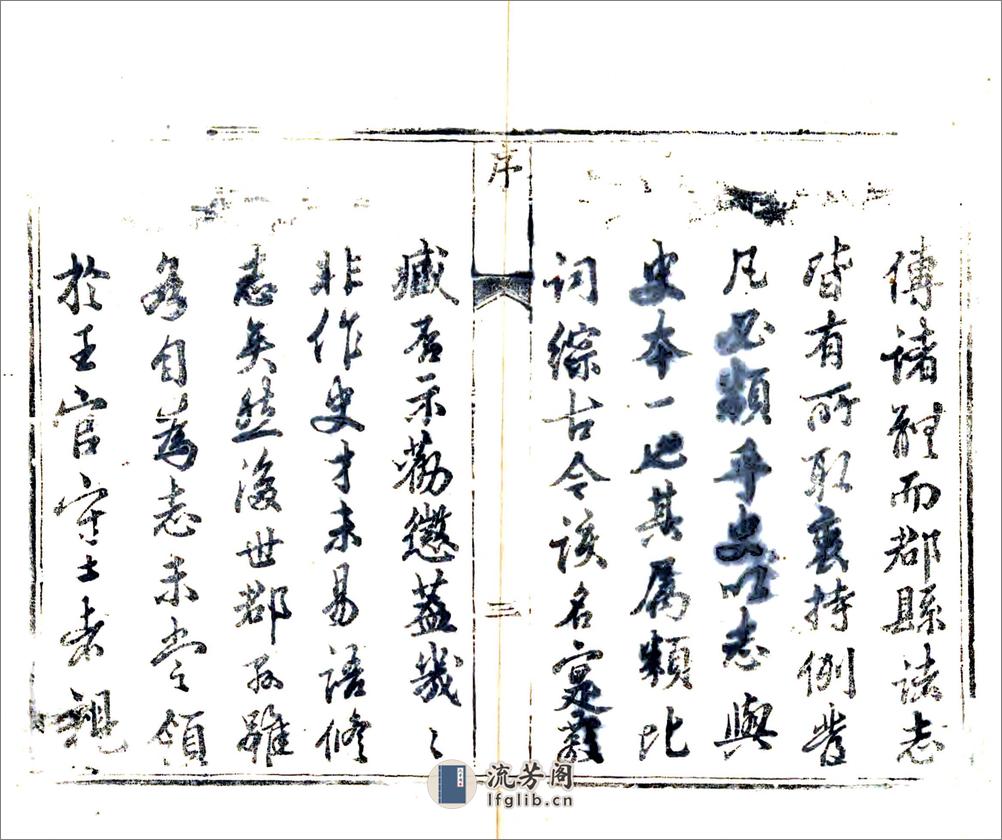 傳諸體而郡縣諸志
皆有所取裏持例發
凡必類乎史以志與
史本一也其属類比
詞綜古今該名寔嚴
序
三
臧否示勸懲蓋戞〻
非作史才未易語修
志矣然後世郡邑雖
各自為志未嘗領
於王官守土者視
流芳阁
lfglib.cn